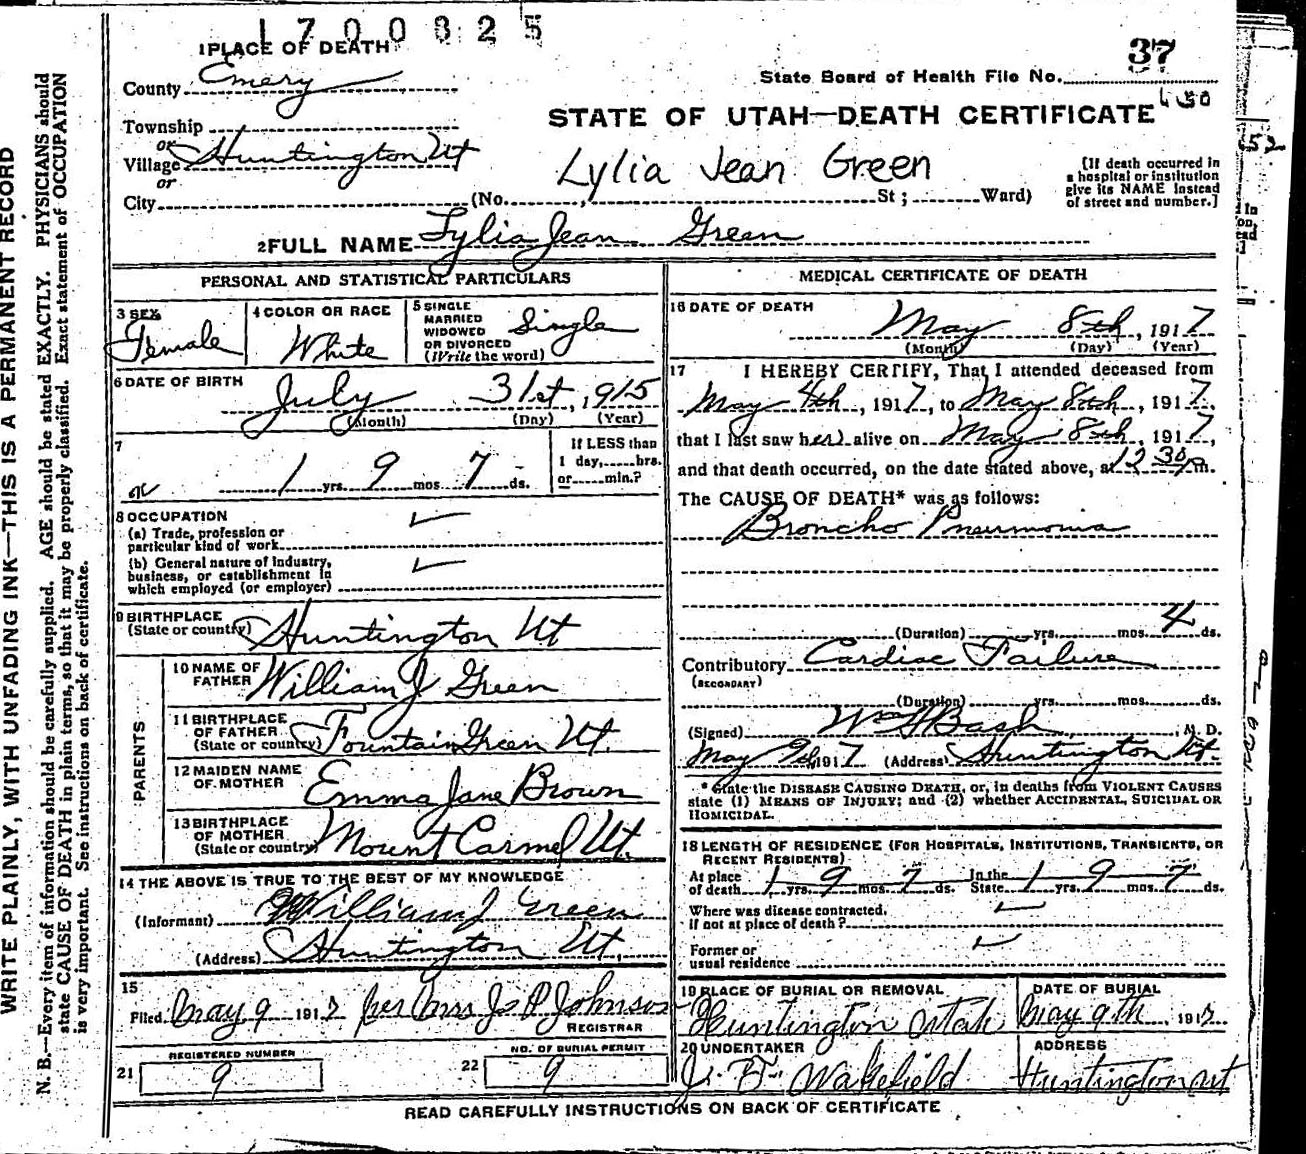 1700825
1 PLACE OF DEATH
37
County Emery
State Board of Health File No.
Township
STATE OF UTAH—DEATH CERTIFICATE
or
Village Huntington Ut
or
Lylia Jean Green
[If death occurred in
a hospital or institution
give its NAME instead
of street and number.]
City (No. , St ; Ward)
2 FULL NAME Lylia Jean Green
PERSONAL AND STATISTICAL PARTICULARS
3 SEX
Female
4 COLOR OR RACE
White
5 SINGLE
MARRIED
WIDOWED
OR DIVORCED
(Write the word)
Single
6 DATE OF BIRTH
July 31st, 1915
(Month) (Day) (Year)
7
1 yrs. 9 mos. 7 ds.
If LESS than
1 day, hrs.
or min.?
8 OCCUPATION
(a) Trade, profession or
particular kind of work
(b) General nature of industry,
business, or establishment in
which employed (or employer)
9 BIRTHPLACE
(State or country) Huntington Ut
PARENTS
10 NAME OF
FATHER William J Green
11 BIRTHPLACE
OF FATHER
(State or country) Fountain Green Ut.
12 MAIDEN NAME
OF MOTHER Emma Jane Brown
13 BIRTHPLACE
OF MOTHER
(State or country) Mount Carmel Ut.
14 THE ABOVE IS TRUE TO THE BEST OF MY KNOWLEDGE
(Informant) William J Green
(Address) Huntington Ut,
15
Filed May 9 1917 per Mrs J P Johnson
REGISTRAR
REGISTERED NUMBER
21 9
NO. OF BURIAL PERMIT
22 9
MEDICAL CERTIFICATE OF DEATH
16 DATE OF DEATH
May 8th, 1917
(Month) (Day) (Year)
17 I HEREBY CERTIFY, That I attended deceased from
May 4th, 1917, to May 8th, 1917,
that I last saw her alive on May 8th, 1917,
and that death occurred, on the date stated above, at 12 30 P m.
The CAUSE OF DEATH* was as follows:
Broncho Pneumonia
(Duration) yrs. mos. 4 ds.
Contributory Cardiac Failure
(SECONDARY)
(Duration) yrs. mos. ds.
(Signed) , M. D.
May 9th 1917 (Address) Huntington Ut.
* State the DISEASE CAUSING DEATH, or, in deaths from VIOLENT CAUSES
state (1) MEANS OF INJURY; and (2) whether ACCIDENTAL, SUICIDAL OR
HOMICIDAL.
18 LENGTH OF RESIDENCE (FOR HOSPITALS, INSTITUTIONS, TRANSIENTS, OR
RECENT RESIDENTS)
At place
of death 1 yrs. 9 mos. 7 ds. In the
State 1 yrs. 9 mos. 7 ds.
Where was disease contracted,
if not at place of death?
Former or
usual residence
19 PLACE OF BURIAL OR REMOVAL
Huntington Utah
DATE OF BURIAL
May 9th 1917
20 UNDERTAKER
Wakefield
ADDRESS
Huntington Ut
READ CAREFULLY INSTRUCTIONS ON BACK OF CERTIFICATE
WRITE PLAINLY, WITH UNFADING INK—THIS IS A PERMANENT RECORD
N. B.—Every item of information should be carefully supplied. AGE should be stated EXACTLY. PHYSICIANS should
state CAUSE OF DEATH in plain terms, so that it may be properly classified. Exact statement of OCCUPATION
is very important. See instructions on back of certificate.